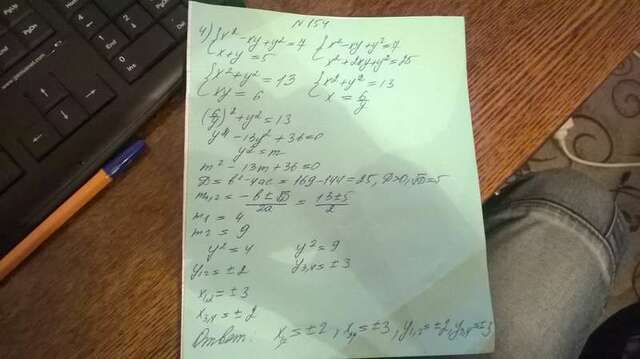 N 154
4) { x² - xy + y² = 7 { x² - xy + y² = 7
{ x + y = 5 { x² + 2xy + y² = 25
{ x² + y² = 13 { x² + y² = 13
{ xy = 6 { x = 6/y
(6/y)² + y² = 13
y⁴ - 13y² + 36 = 0
y² = m
m² - 13m + 36 = 0
D = b² - 4ac = 169 - 144 = 25, D>0, √D = 5
m₁,₂ = (-b ± √D)/2a = (13 ± 5)/2
m₁ = 4
m₂ = 9
y² = 4 y² = 9
y₁,₂ = ± 2 y₃,₄ = ± 3
x₁,₂ = ± 3
x₃,₄ = ± 2
Ответ: x₁,₂ = ± 2, x₃,₄ = ± 3, y₁,₂ = ± 2, y₃,₄ = ± 3
PgDn
End